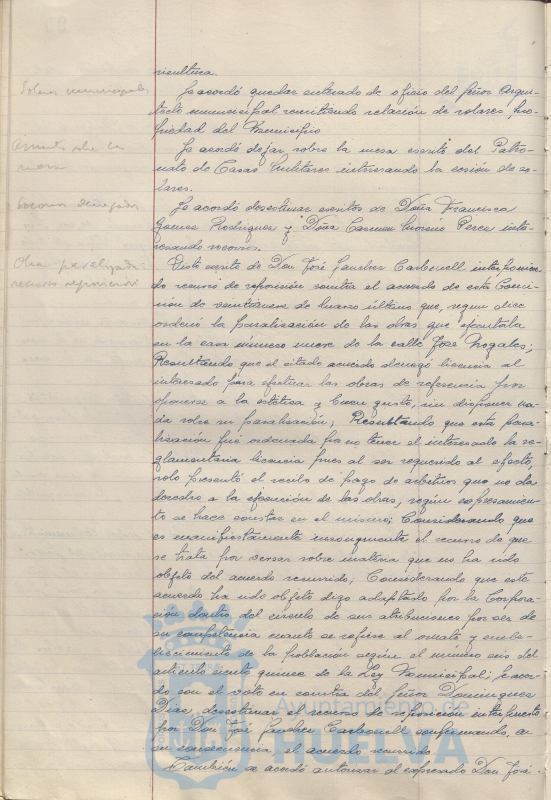 nicultura.
Solares municipales
Se acordó quedar enterado de oficio del Señor Arqui-
tecto municipal remitiendo relación de solares, pro-
piedad del Municipio
Asunto sobre la
mesa
Se acordó dejar sobre la mesa escrito del Patro-
nato de Casas Militares interesando la cesión de so-
lares.
Socorros denegados
Se acordó desestimar escritos de Doña Francisca
Gomez Rodriguez y Doña Carmen Moreno Perea inte-
resando socorros.
Obra paralizada:
recurso reposición
Visto escrito de Don José Sanchez Carbonell interponien-
do recurso de reposición contra el acuerdo de esta Comi-
sión de veintinueve de Marzo último que, según dice
ordenó la paralización de las obras que ejecutaba
en la casa número nueve de la calle José Nogales;
Resultando que el citado acuerdo denegó licencia al
interesado para efectuar las obras de referencia por
oponerse a la estética y buen gusto, sin disponer na-
da sobre su paralización; Resultando que esta para-
lización fué ordenada por no tener el interesado la re-
glamentaria licencia pues al ser requerido al efecto,
solo presentó el recibo de pago de arbitrios que no da
derecho a la ejecución de las obras, según expresamen-
te se hace constar en el mismo; Considerando que
es manifiestamente incongruente el recurso de que
se trata por versar sobre materia que no ha sido
objeto del acuerdo recurrido; Considerando que este
acuerdo ha sido objeto digo adoptado por la Corpora-
ción dentro del círculo de sus atribuciones por ser de
su competencia cuanto se refiere al ornato y embe-
llecimiento de la población según el número seis del
artículo ciento quince de la Ley Municipal; se acor-
dó con el voto en contra del Señor Dominguez
Diaz, desestimar el recurso de reposición interpuesto
por Don José Sanchez Carbonell confirmando, en
su consecuencia, el acuerdo recurrido.
También se acordó autorizar al expresado Don José
Ayuntamiento de
HUELVA